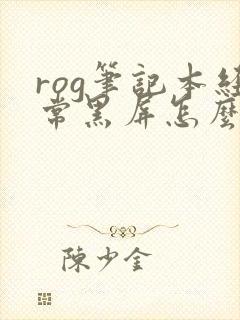 rog筆記本経
常黑屏怎麼
陳少金